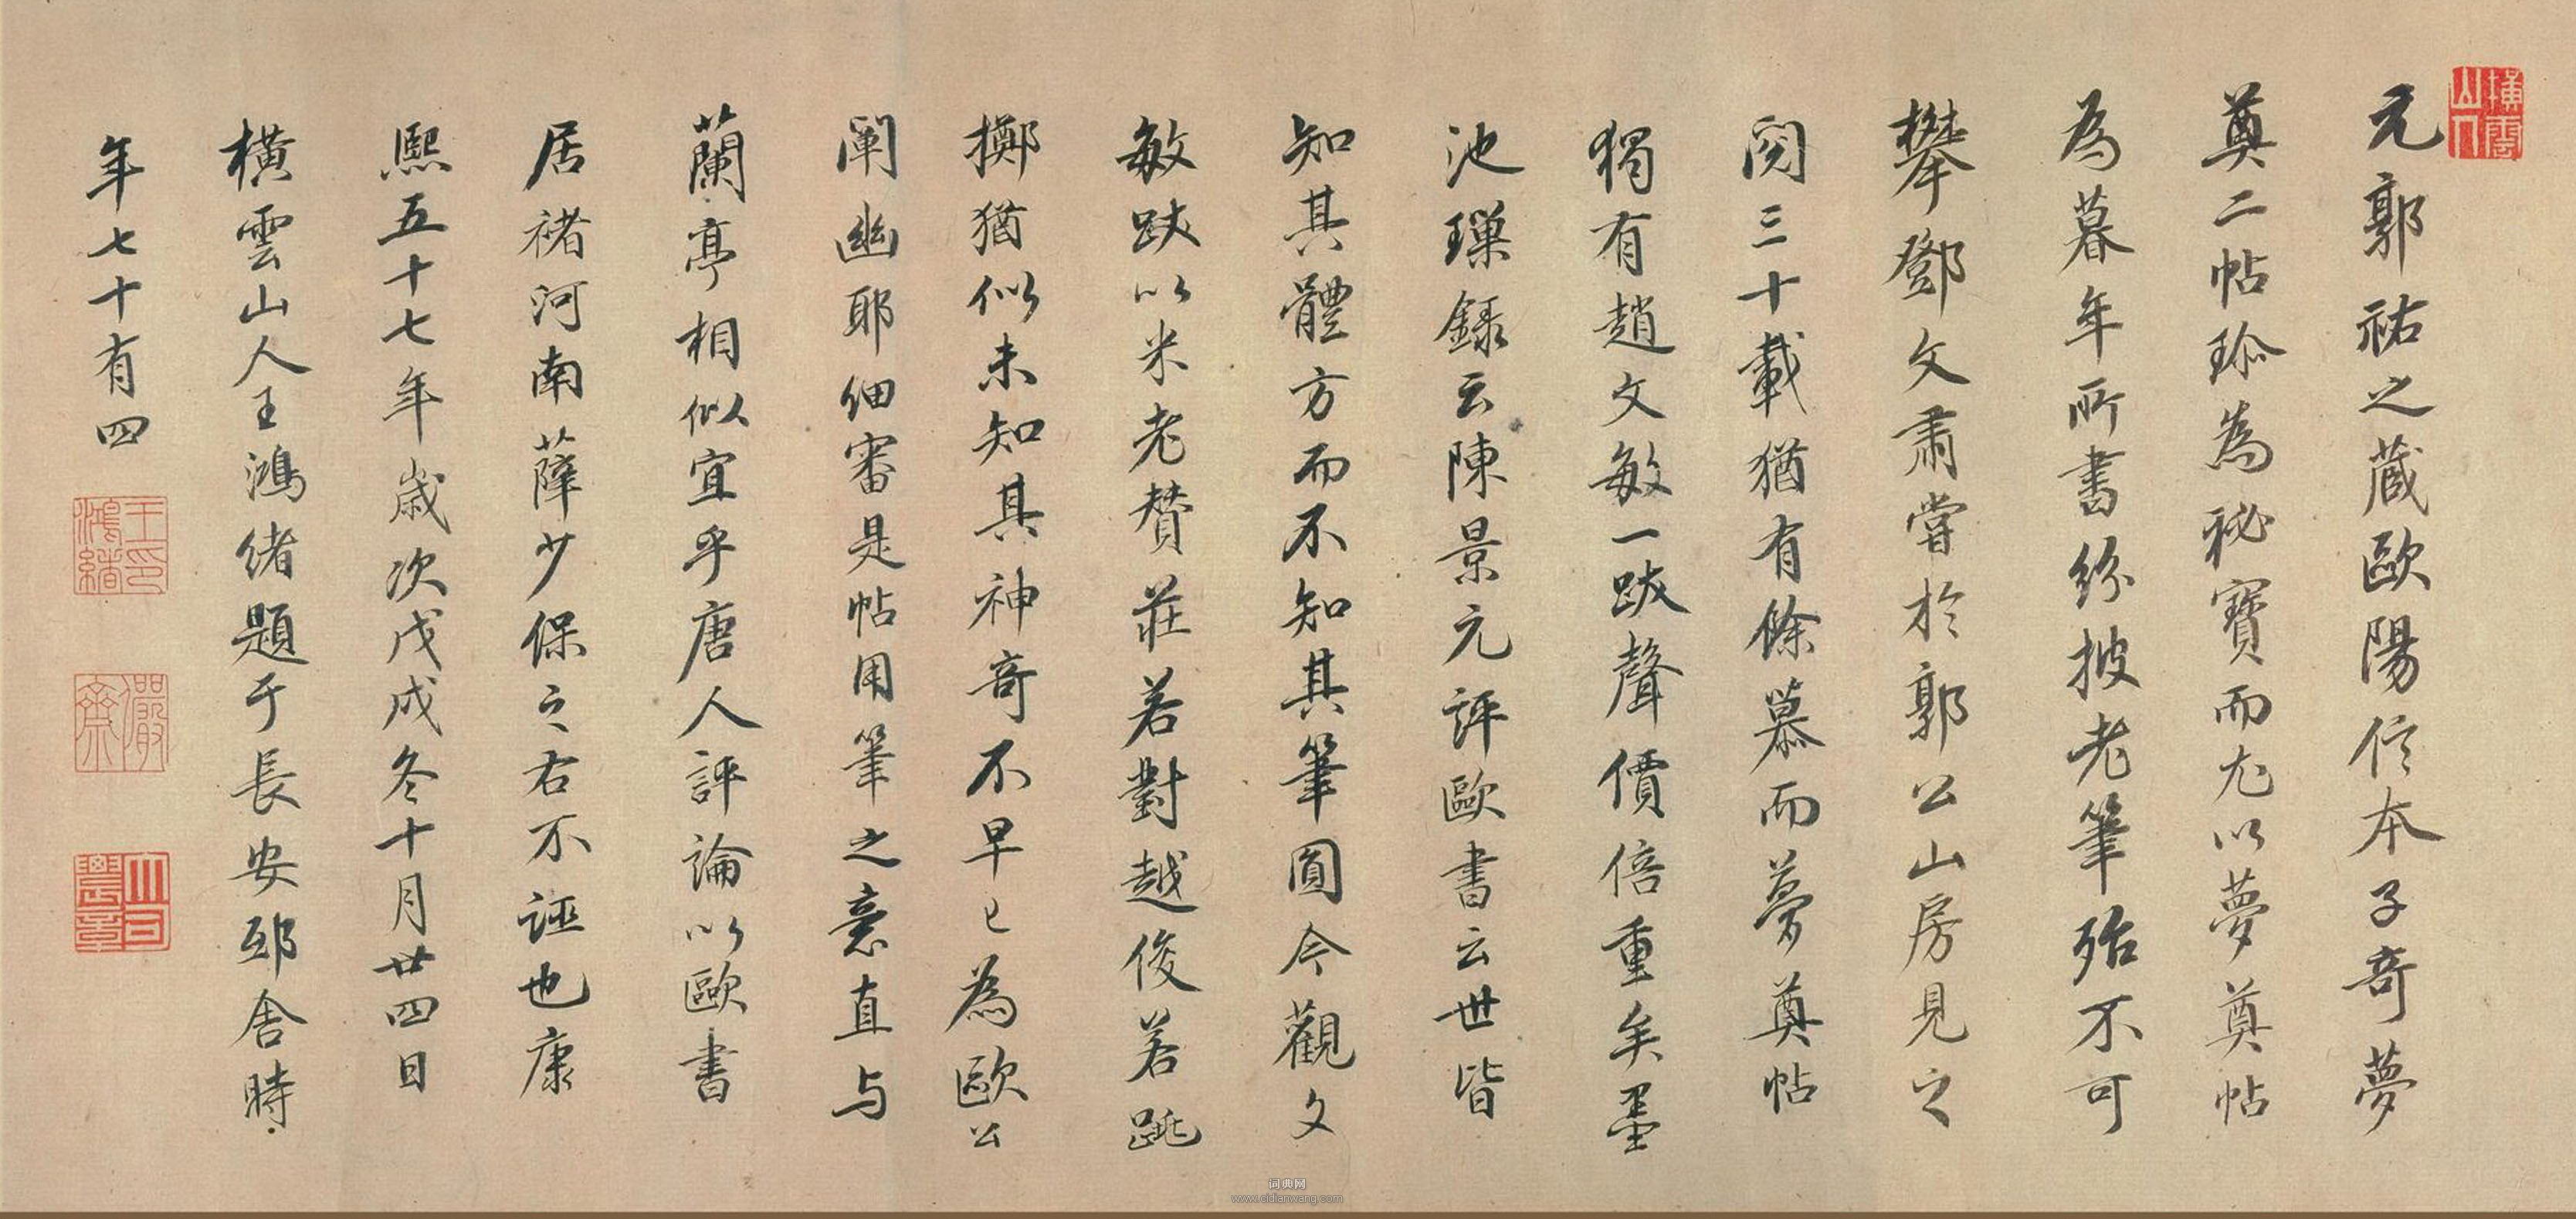 橫雲山人
元郭祐之蔵歐陽信本子奇夢
奠二帖珎為祕寶而尤以夢奠帖
為暮年所書紛披老筆殆不可
攀鄧文肅嘗於郭公山房見之
閱三十載猶有餘慕而夢奠帖
獨有趙文敏一跋聲價倍重矣墨
池璅錄云陳景元評歐書云世皆
知其體方而不知其筆圓今觀文
敏跋以米老賛莊若對越俊若跳
擲猶似未知其神奇不早已為歐公
闡幽耶細審是帖用筆之意直与
蘭亭相似宜乎唐人評論以歐書
居褚河南薛少保之右不誣也康
熙五十七年歲次戊戌冬十月廿四日
橫雲山人王鴻緒題于長安邸舍時
年七十有四
王鴻緒印
儼齋
大司農章
词典网
www.cidianwang.com